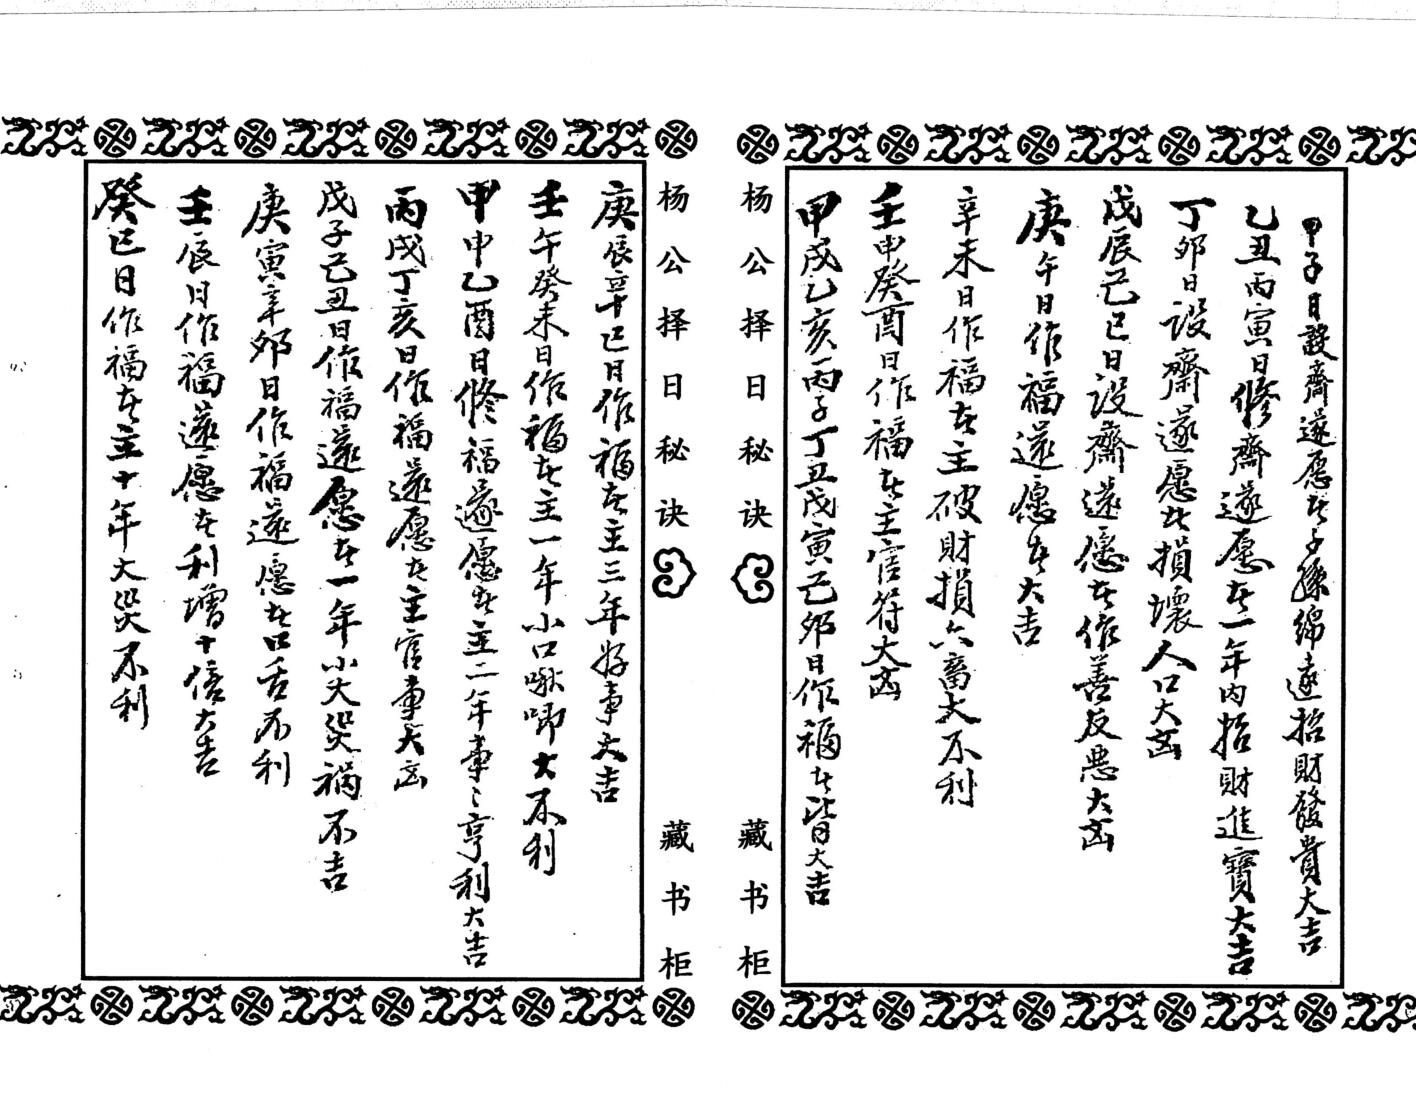 甲子日設齋遂愿主子孫綿遠招財發貴大吉
乙丑丙寅日修齋遂愿主一年内招財進寶大吉
丁卯日設齋遂愿主損壞人口大凶
戊辰己巳日設齋遂愿主作善反惡大凶
庚午日作福遂愿主大吉
辛未日作福主主破財損六畜大不利
壬申癸酉日作福主主官符大凶
甲戌乙亥丙子丁丑戊寅己卯日作福主皆大吉
杨公择日秘诀
藏书柜
杨公择日秘诀
藏书柜
庚辰辛巳日作福主主三年好事大吉
壬午癸未日作福主主一年小口啾唧大不利
甲申乙酉日修福遂愿主主二年事〻亨利大吉
丙戌丁亥日作福遂愿主主官事大凶
戊子己丑日作福遂愿主一年小大災禍不吉
庚寅辛卯日作福遂愿主口舌不利
壬辰日作福遂愿主利增十倍大吉
癸巳日作福主主十年大災不利